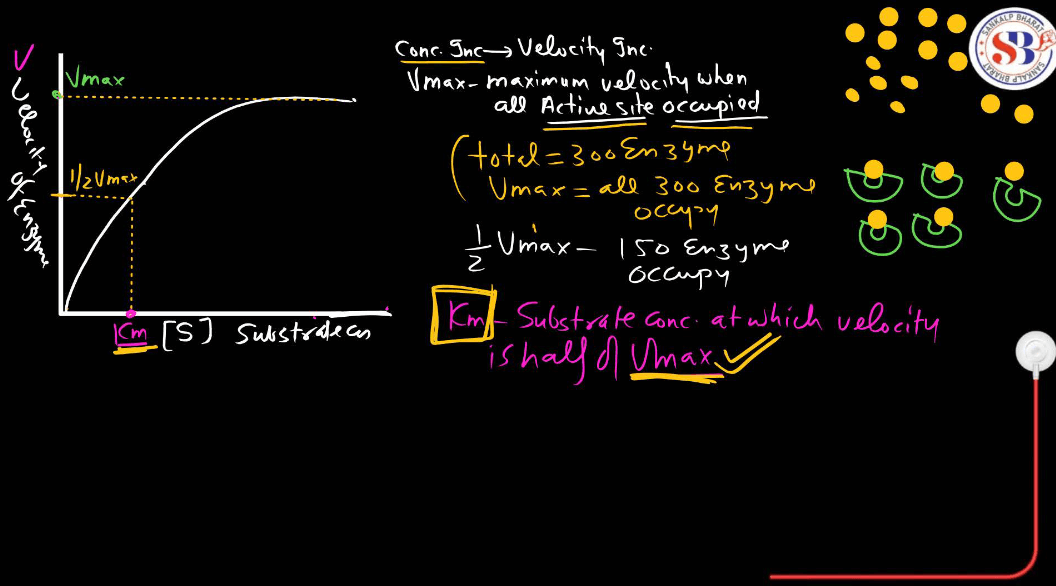 V
Velocity of Enzyme
Vmax
1/2 Vmax
Km [S] Substrate con
Conc. Inc → Velocity Inc.
Vmax - maximum velocity when
all Active site occupied
total = 300 Enzyme
Vmax = all 300 Enzyme
occupy
1/2 Vmax - 150 Enzyme
occupy
Km - Substrate conc. at which velocity
is half of Vmax
SANKALP BHARAT
SB
SANKALP BHARAT